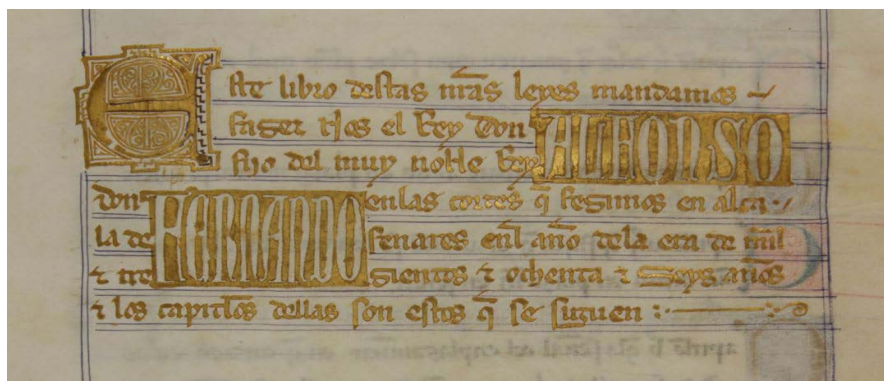 Este libro destas nr̃as leyes mandamos
fazer nos el Rey don ALFONSO
fijo del muy noble Rey
don FERNANDO en las cortes q̃ fezimos en alca
la de fenares en'l año dela era de mill
τ tre zientos τ ochenta τ Seys años
τ los capitl̃os dellas son estos q̃ se siguen :